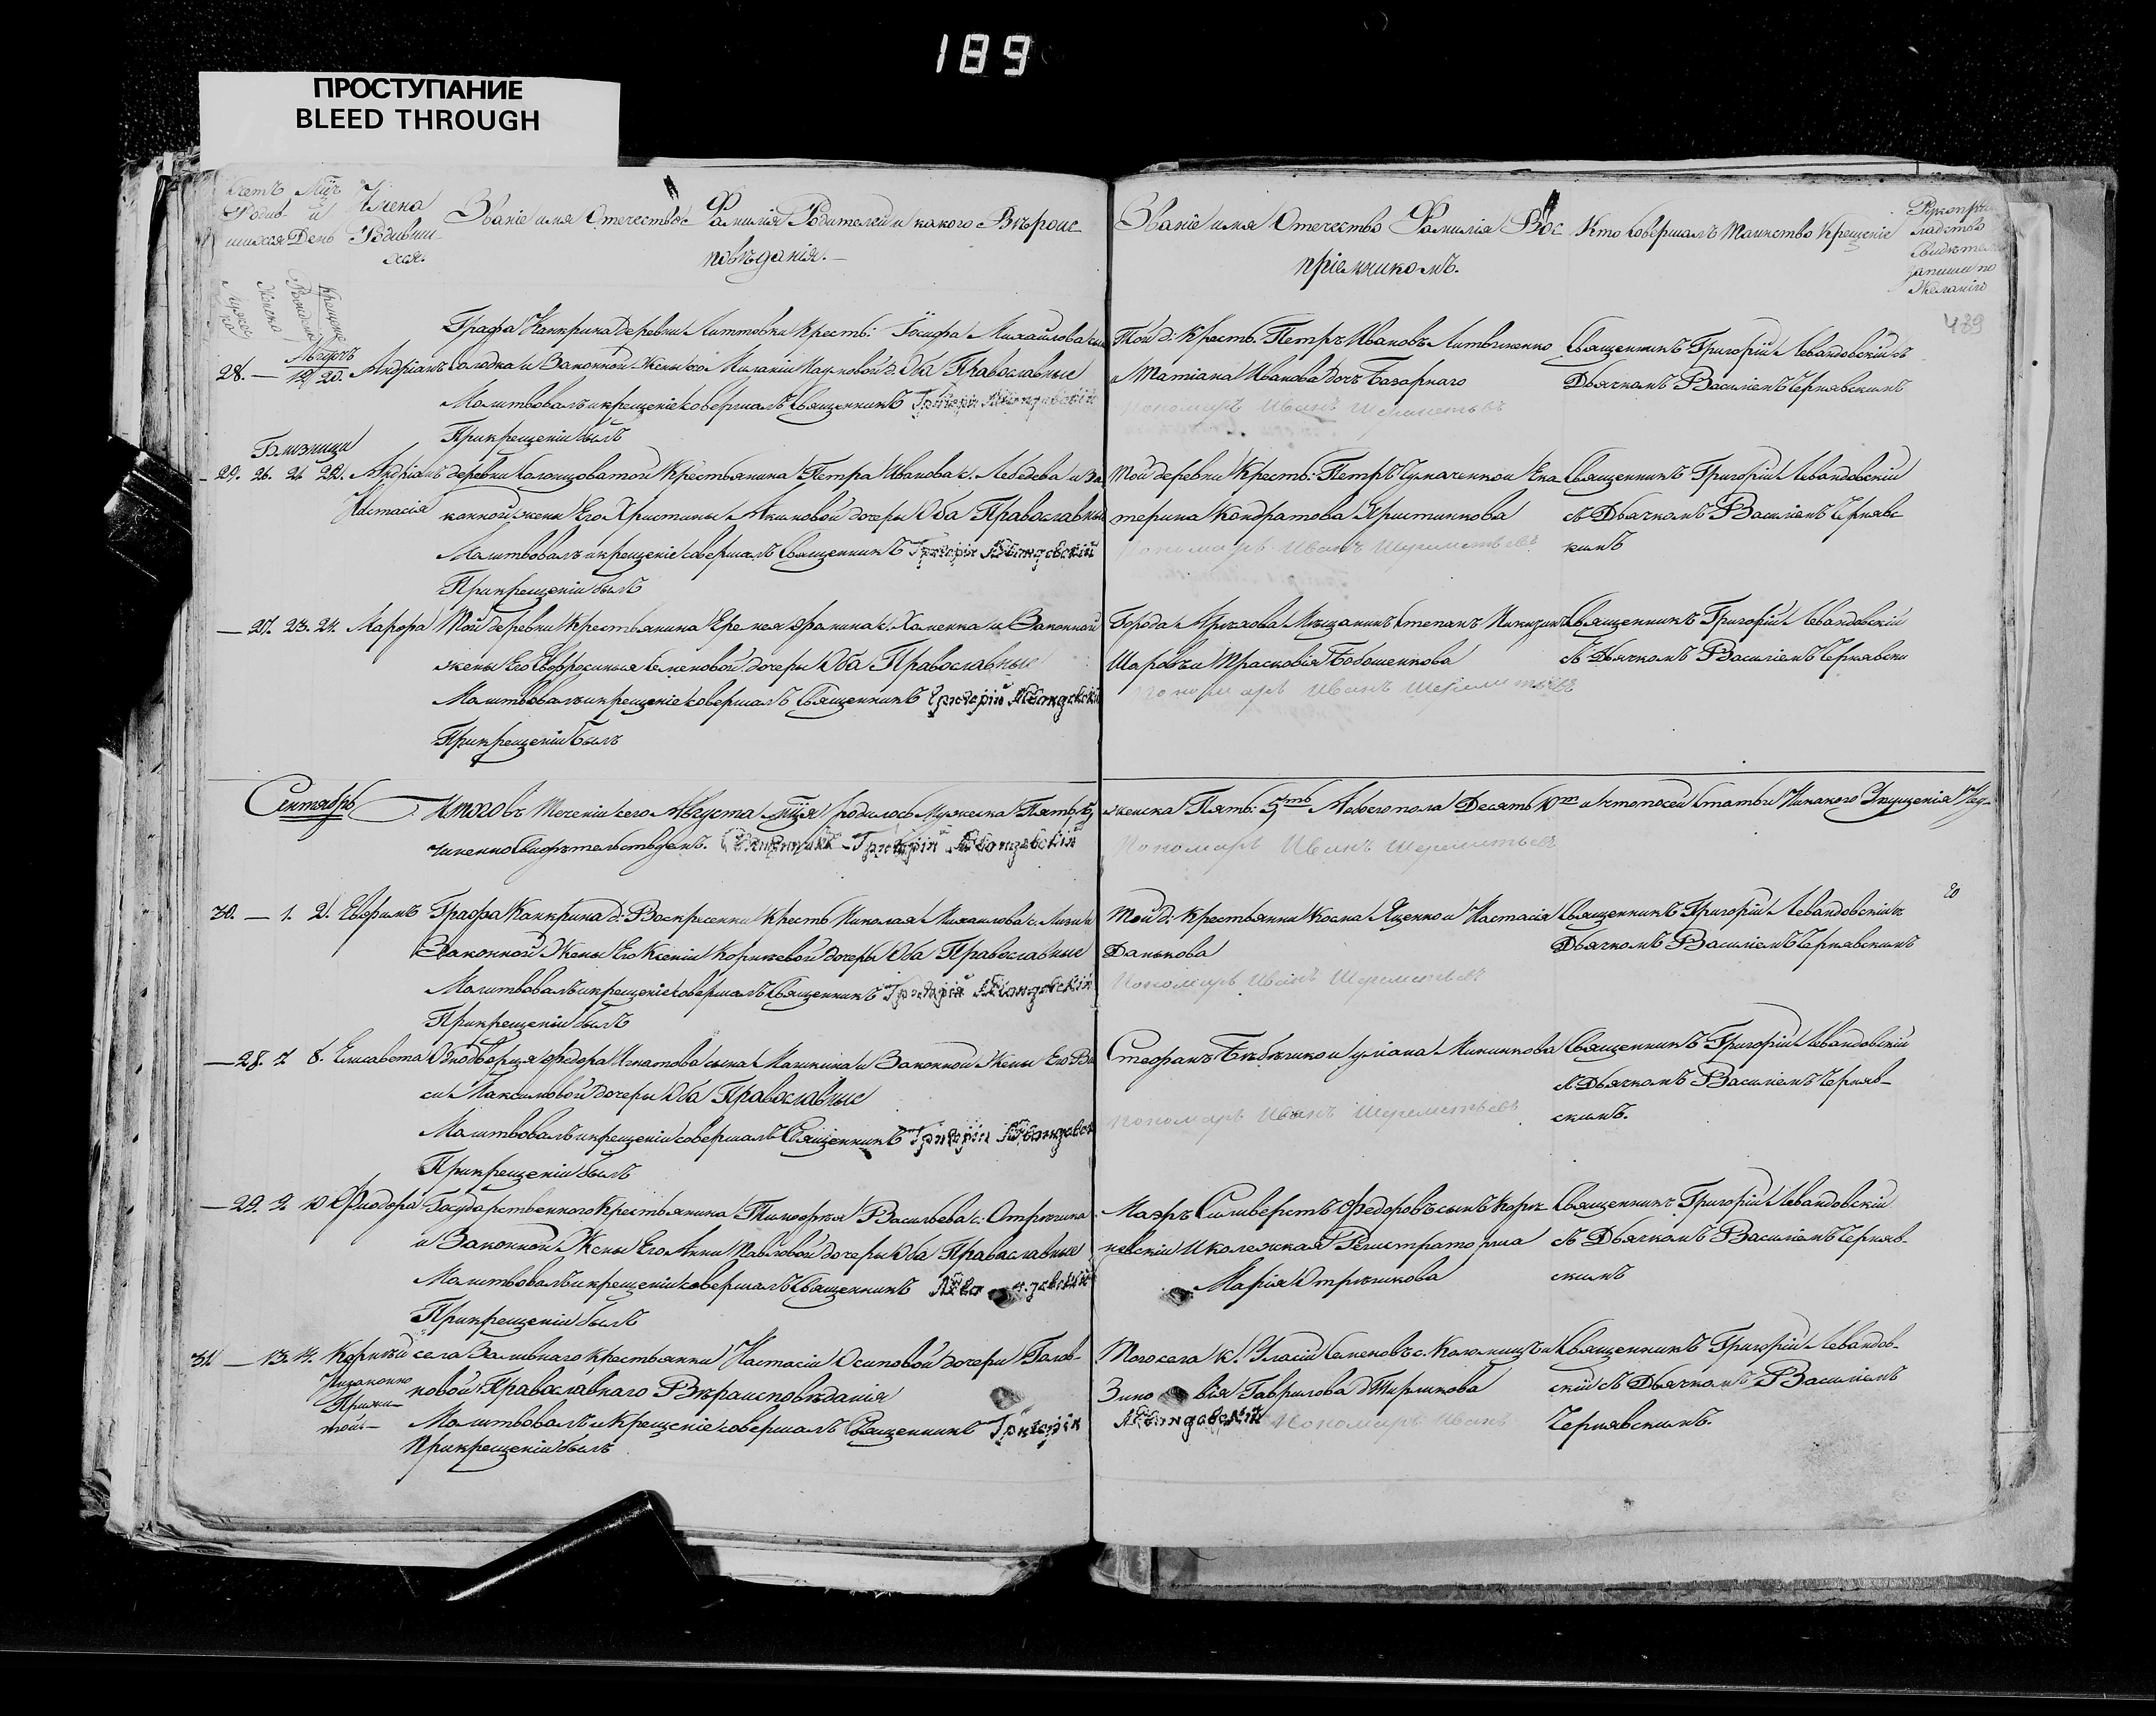 189
ПРОСТУПАНИЕ
BLEED THROUGH
Счетъ Родив-шихся
Мцъ и День
Имена Родивши-хся.
Званіе имя Отечество и Фамилія Родителей и какого Вѣроис
повѣданія.
Званіе имя Отечество Фамилія Вос
пріемникомъ.
Кто совершалъ Таинство Крещенія
Рукопри
кладство
Свидѣтел
записи по
желанію
Мужеска
Женска
Рожденія
Крещенія
489
Августъ
28. — 19. 20. Андріанъ
Графа Канкрина деревни Литовки Кресть: Іосифа Михайлова сына
Солодка и Законной Жены его Меланіи Наумовой д. Оба Православные
Молитвовалъ и крещеніе совершалъ Священникъ Григорій Левандовскій
При крещеніи былъ
Той д: Кресть. Петръ Ивановъ Литвиненко
и Татіана Иванова дочь Базарнаго
Пономарь Иванъ Шереметьевъ
Священникъ Григорій Левандовскій съ
Дьячкомъ Василіемъ Чернявскимъ
Близнецы
29. 26. 21. 22. Андріанъ
Настасія
деревни Крестьянина Петра Иванова с. Лебедева и За
конной жены Его Христины Акимовой дочери Оба Православные
Молитвовалъ и крещеніе совершалъ Священникъ Григорій Левандовскій
При крещеніи былъ
Той деревни Кресть: Петръ Чумаченко и Ека
терина Кондратова Христинкова
Пономарь Иванъ Шереметьевъ
Священникъ Григорій Левандовскій
съ Дьячкомъ Василіемъ Чернявс
кимъ
— 27. 23. 24. Марфа
Той деревни Крестьянина Еремея с. Хоменка и Законной
жены Его Евфросиньи Семеновой дочери Оба Православные
Молитвовалъ и крещеніе совершалъ Священникъ Григорій Левандовскій
При крещеніи былъ
Города Мѣщанинъ Степанъ
и Прасковія Бобошенкова
Пономарь Иванъ Шереметьевъ
Священникъ Григорій Левандовскій
съ Дьячкомъ Василіемъ Чернявски
Сентябрь
Итого въ теченіи сего Августа мѣсяца родилось Мужеска Пять, 5.
женска Пять: 5ть Обоего пола Десять 10ть и что по сей статьи Никакого Упущенія Не у-
чинено Свидѣтельствуемъ. Священникъ Григорій Левандовскій
Пономарь Иванъ Шереметьевъ
30. — 1. 2. Евфимъ
Графа Канкрина д: Воскресенки Кресть Николая Михаилова с.
Законной Жены Его Ксеніи Корнѣевой дочери Оба Православные
Молитвовалъ и крещеніе совершалъ Священникъ Григорій Левандовскій
При крещеніи былъ
Той д: Крестьянин Косма Яценко и Настасія
Данькова
Пономарь Иванъ Шереметьевъ
Священникъ Григорій Левандовскій съ
Дьячкомъ Василіемъ Чернявскимъ
20
— 28. 7. 8. Елисавета
Однодворца Федора Игнатова сына Машкина и Законной Жены Его Ва
си Максимовой дочери Оба Православные
Молитвовалъ и крещеніе совершалъ Священникъ Григорій Левандовск
При крещеніи былъ
Стефанъ и Уліана Микинкова
Пономарь Иванъ Шереметьевъ
Священникъ Григорій Левандовскій
съ Дьячкомъ Василіемъ Черняв-
скимъ.
— 29. 9. 10. Фиодора
Государственного Крестьянина Тимофея Васильева с. Отрѣшка
и Законной Жены Его Анны Павловой дочери Оба Православные
Молитвовалъ и крещеніе совершалъ Священникъ Левандовскій
При крещеніи былъ
Маэръ Силиверстъ Федоровъ сынъ Корч
невскій и Колежская Регистраторша
Марія Отрѣшкова
Священникъ Григорій Левандовскій
съ Дьячкомъ Василіемъ Черняв-
скимъ
31. — 13. 14. Корнѣй
Незаконно
Прижи-
той.
села Заливнаго Крестьянки Настасіи Осиповой дочери Голов-
ковой Православнаго Вѣраисповѣданія
Молитвовалъ и Крещеніе совершалъ Священникъ Григорій
При крещеніи былъ
Того села К: Власій Семеновъ с. Коломицъ и
Зиновія Гаврилова д
Левандовскій Пономарь Иванъ
Священникъ Григорій Левандов-
скій съ Дьячкомъ Василіемъ
Чернявскимъ.